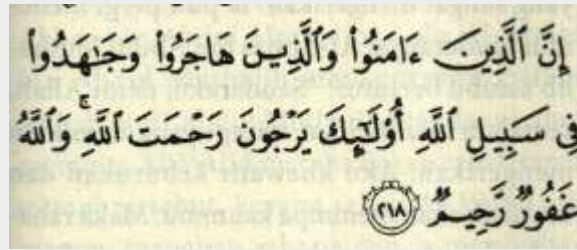 إِنَّ ٱلَّذِينَ ءَامَنُوا۟ وَٱلَّذِينَ هَاجَرُوا۟ وَجَٰهَدُوا۟
فِى سَبِيلِ ٱللَّهِ أُو۟لَٰٓئِكَ يَرْجُونَ رَحْمَتَ ٱللَّهِ ۚ وَٱللَّهُ
غَفُورٌ رَّحِيمٌ ﴿٢١٨﴾